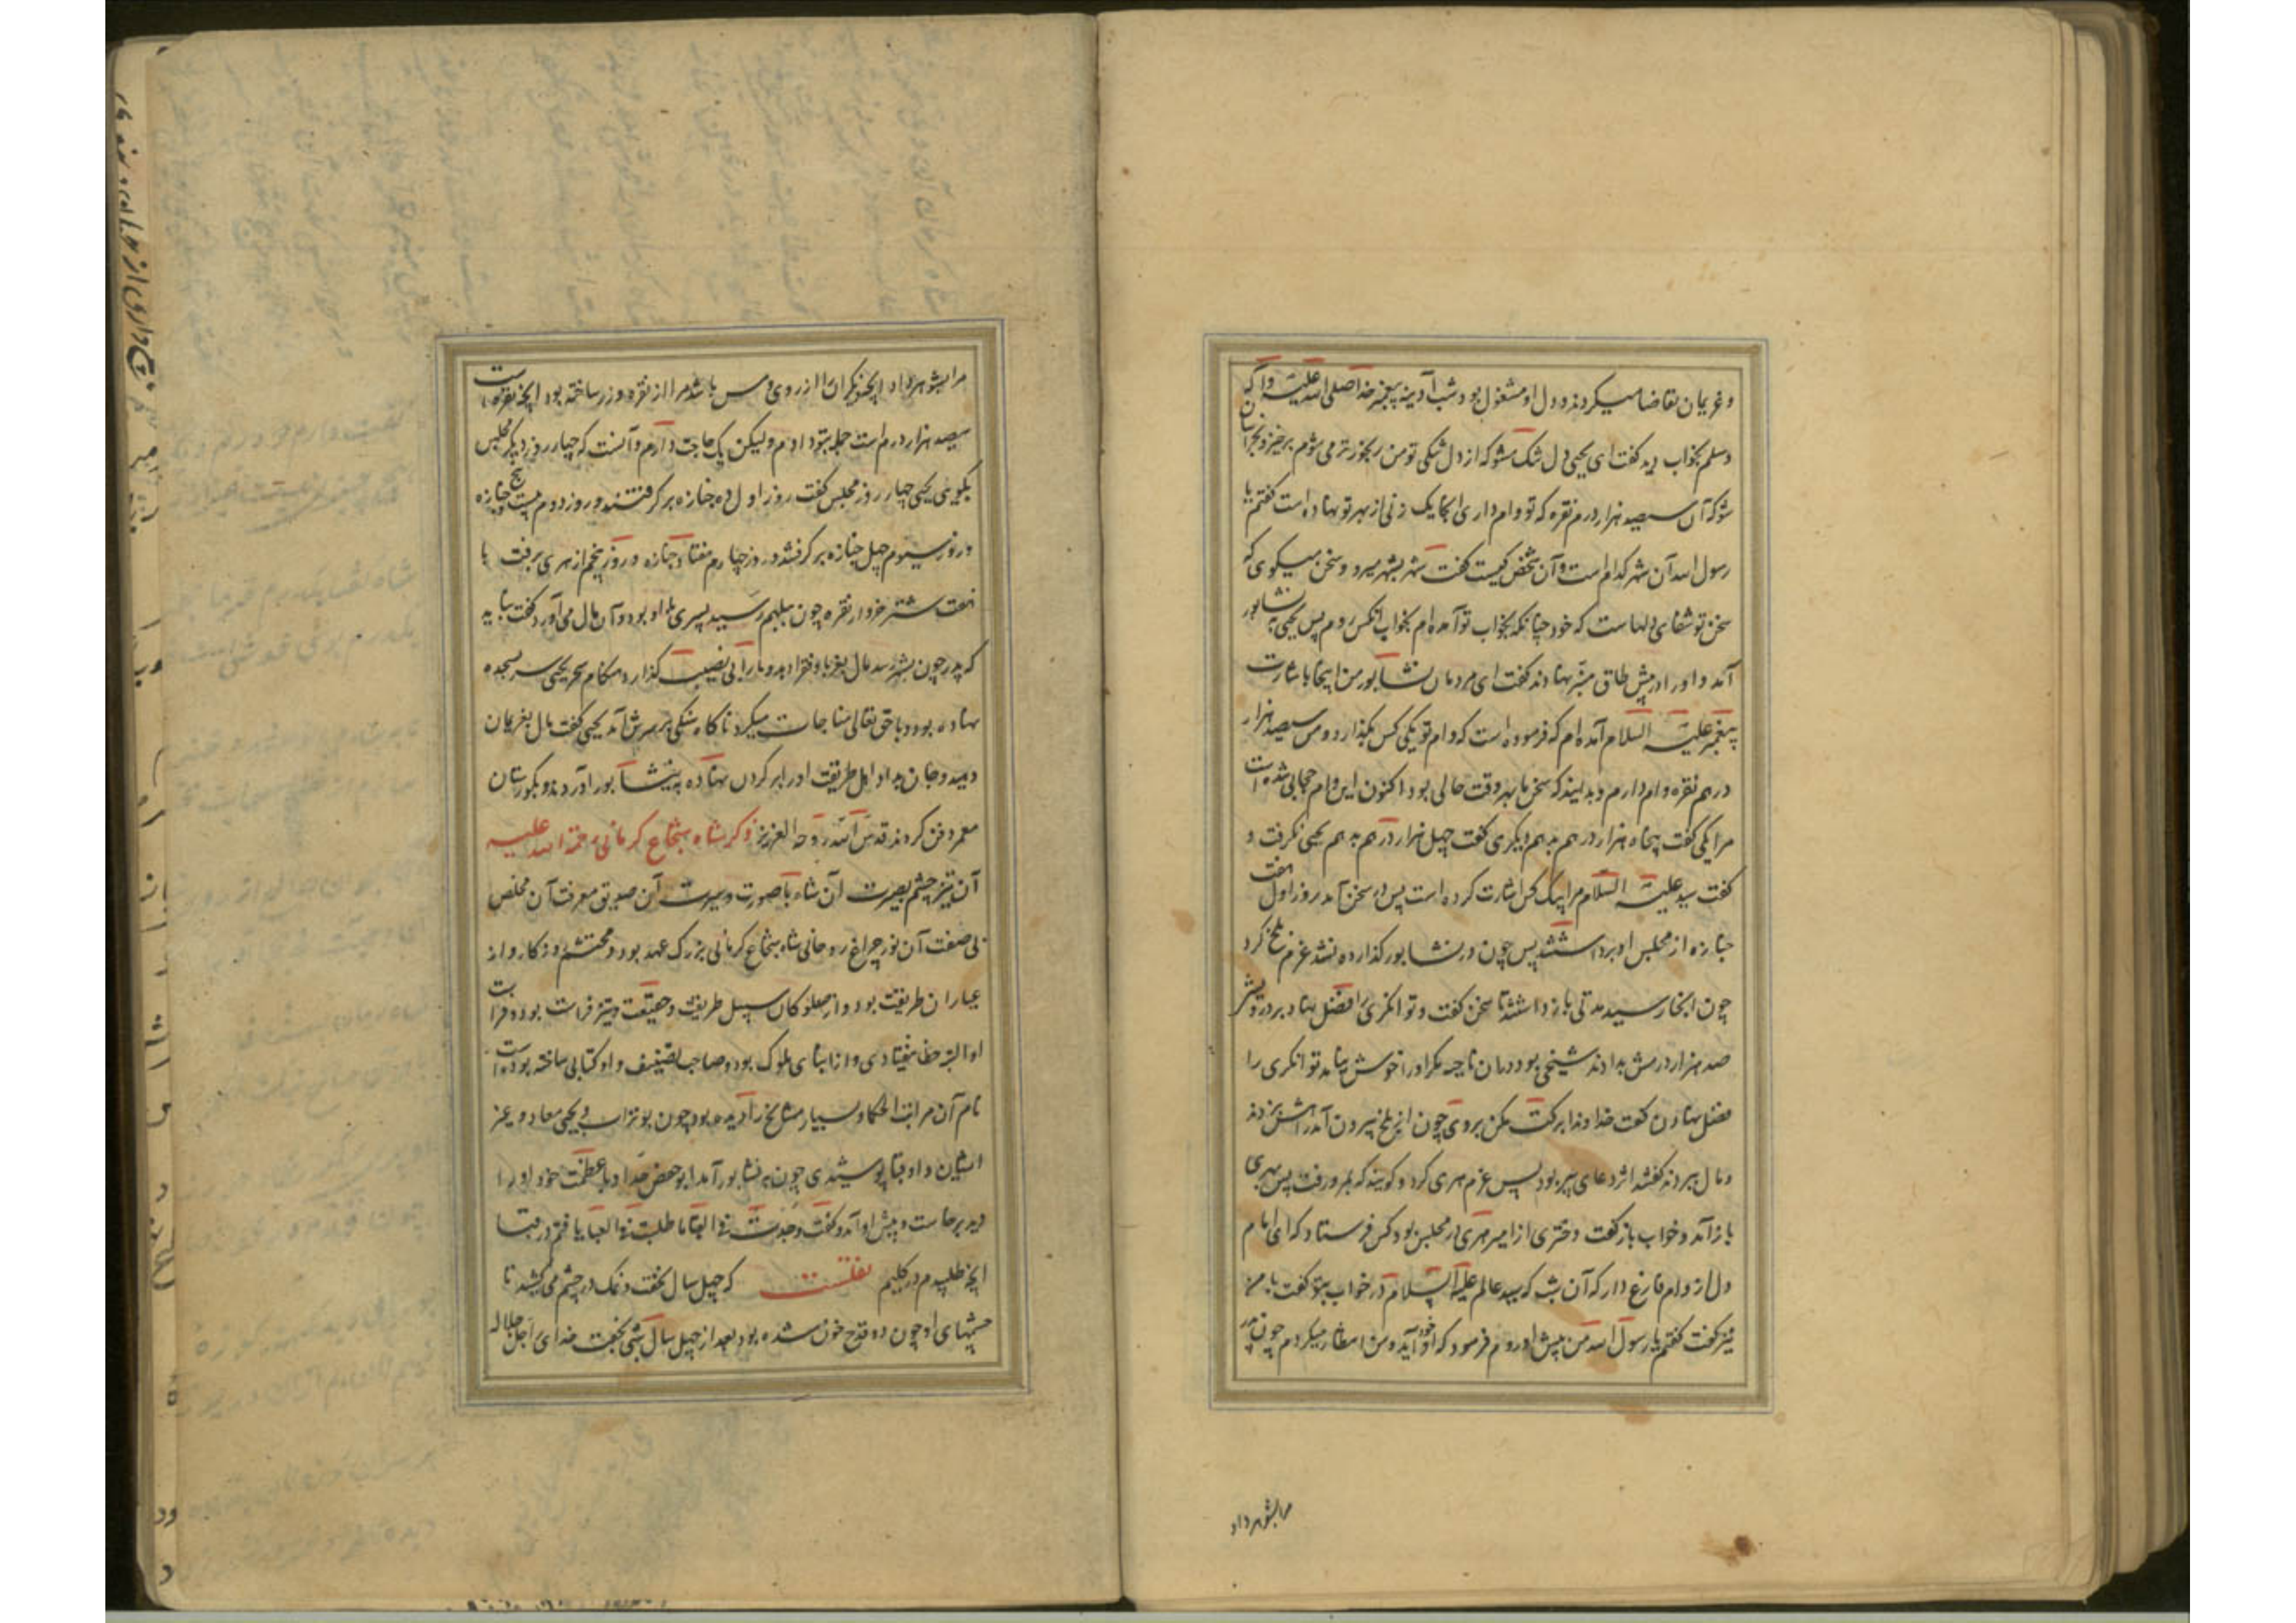 و غریمان تقاضا میکردند و دل او مشغول بود شب آدینه پیغمبر خدا صلی الله علیه و آله
و سلم بخواب دید گفت ای یحیی دل تنگ مشو که از دل تنگی تو من رنجورتر می شوم برخیز و بخراسان
شو که آن سیصد هزار درم نقره که تو وام داری انجا یک زنی از بهر تو نهاده است گفتم یا
رسول الله آن شهر کدام است و آن شخص کیست گفت شهر بشهر میرو و سخن میگوی که
سخن تو شفای دلهاست که خود چنانکه بخواب تو آمده ام بخواب آنکس روم پس یحیی به نشابور
آمد و او را در پیش طاق منبر نهادند گفت ای مردمان نشابور من اینجا باشارت
پیغمبر علیه السلام آمده ام که فرموده است که وام تو یکی کس بگذارد و من سیصد هزار
درهم نقره وام دارم و بدانید که سخن ما بهر وقت جمالی بود اکنون این وام حجابی شده است
مرا یکی گفت پنجاه هزار درهم بدهم دیگری گفت چهل هزار درهم بدهم یحیی نگرفت و
گفت سید علیه السلام مرا بیک کس اشارت کرده است پس در سخن آمد روز اول هفت
جنازه از مجلس او برداشتند پس چون در نشابور گذارده نشد عزم بلخ کرد
چون انجا رسید مدتی باز داشتند تا سخن گفت و توانگری را فضل نهاد بر درویشی
صد هزار درمش بدادند شیخی بود در آن ناحیه مگر او را خوش نیامد توانگری را
فضل نهادن گفت خداوندا برکت مکن بر وی چون از بلخ بیرون آمد راهش بزدند
و مال ببردند گفتند اثر دعای پیر بود پس عزم هری کرد و گویند که بمرو رفت پس بهری
باز آمد و خواب باز گفت دختری از امیر هری در مجلس بود کس فرستاد که ای امام
دل از وام فارغ دار که آن شب که سید عالم علیه السلام در خواب بتو گفت با من
نیز گفت گفتم یا رسول الله من پیش او روم فرمود که او خود آید و من انتظار میکردم چون پدر
مرا بشوهر داد
مرا بشوهر داد انچه دیگران را از روی و مس باشد مرا از نقره و زر ساخته بود انچه نقره است
سیصد هزار درم است جمله بتو دادم ولیکن یک حاجت دارم و آنست که چهار روز دیگر مجلس
بگوی یحیی چهار روز مجلس گفت روز اول ده جنازه برگرفتند و روز دوم بیست و پنج جنازه
و روز سیوم چهل جنازه برگرفتند و روز چهارم هفتاد جنازه و روز پنجم از هری برفت با
هفت شتر خروار نقره چون ببلهم رسید پسری با او بود و آن مال می آورد گفت نباید
که پدر چون بشهر رسد مال بغرما و فقرا دهد و ما را بی نصیب گذارد هنگام سحر یحیی سر بسجده
نهاده بود و با حق تعالی مناجات میکرد ناگاه سنگی بر سرش آمد یحیی گفت مال بغریمان
دهید و جان بداد اهل طریقت او را بر گردن نهاده به نیشابور آوردند و بگورستان
معمر دفن کردند قدس الله روحه العزیز ذکر شاه شجاع کرمانی رحمة الله علیه
آن تیز چشم بصیرت آن شاه با صورت و سیرت آن صدیق معرفت آن مخلص
بی صفت آن نور چراغ روحانی شاه شجاع کرمانی بزرگ عهد بود و محتشم روزگار و از
عیاران طریقت بود و از صعلوکان سبیل طریقت و حقیقت و تیز فراست بود و فراست
او البته خطا نیفتادی و از ابنای ملوک بود و صاحب تصنیف و او کتابی ساخته بوده است
نام آن مرآت الحکما و بسیار مشایخ را دیده بود چون بوتراب و یحیی معاذ و غیر
ایشان و او قبا پوشیدی چون به نشابور آمد ابو حفص حداد با عظمت خود او را
دید برخاست و پیش او آمد و گفت وجدت فی القبا ما طلبت فی العبا یافتم در قبا
انچه طلبیدم در گلیم نقلست که چهل سال نخفت و نمک در چشم می کشید تا
چشمهای او چون دو قدح خون شده بود بعد از چهل سال شبی بخفت خدای را جل جلاله